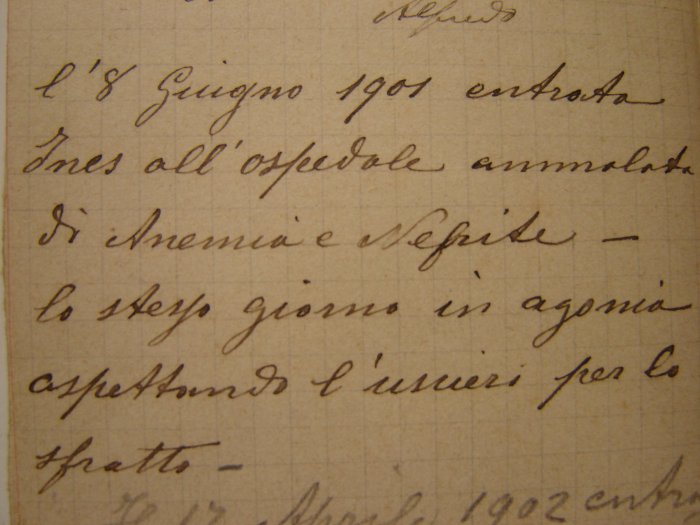 Alfredo
l'8 Giugno 1901 entrata
Ines all'ospedale ammalata
di Anemia e Nefrite –
lo stesso giorno in agonia
aspettando l'uscieri per lo
sfratto –
Il 17 Aprile 1902 entra